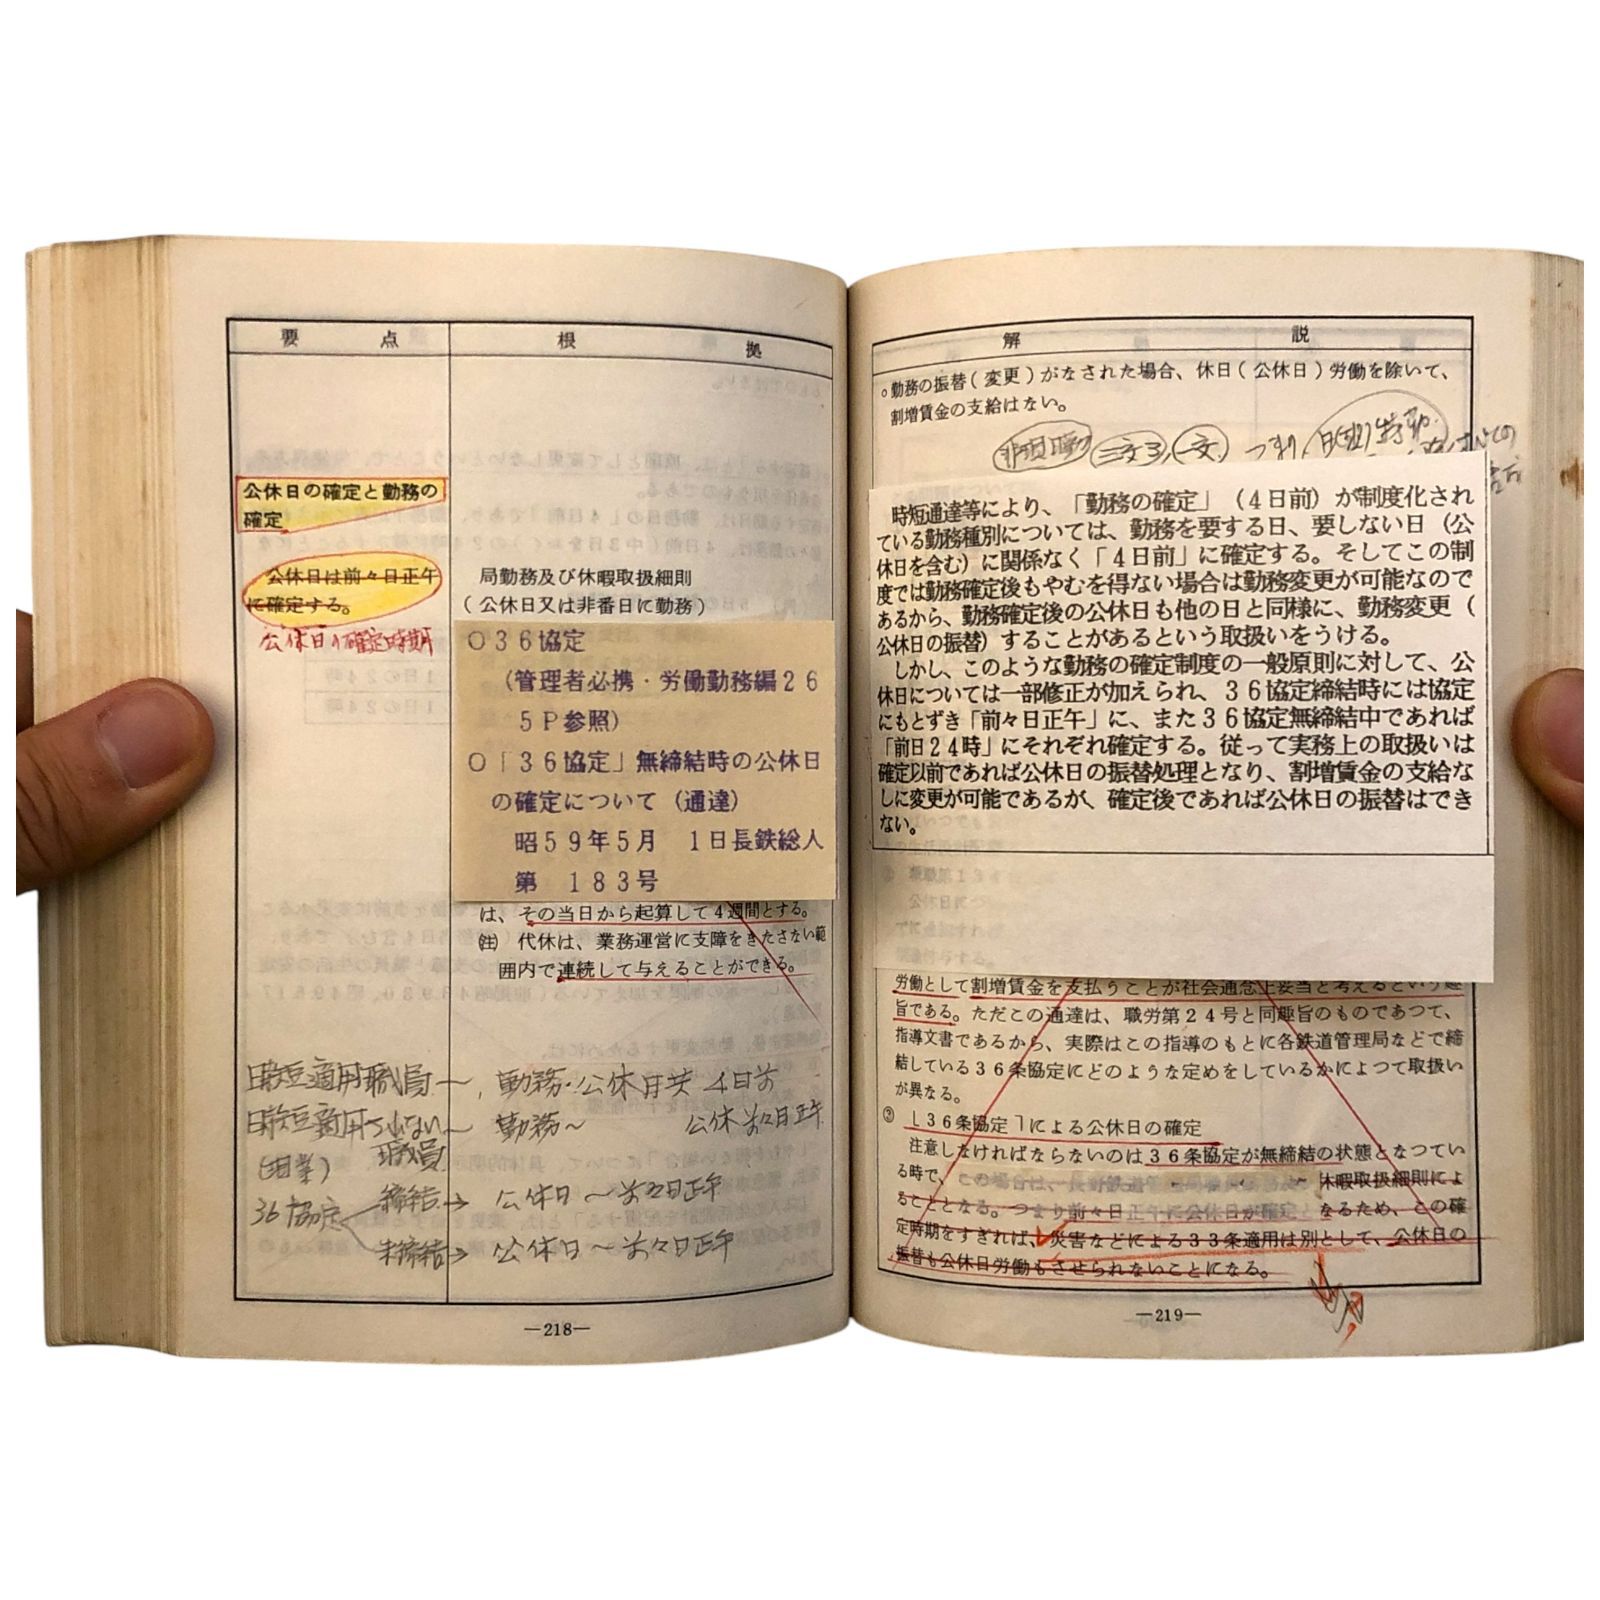 要点
根拠
公休日の確定と勤務の
確定
公休日は前々日正午
に確定する。
公休日の確定時期
局勤務及び休暇取扱細則
(公休日又は非番日に勤務)
○36協定
(管理者必携・労働勤務編26
5P参照)
○「36協定」無締結時の公休日
の確定について(通達)
昭59年5月 1日長鉄総人
第 183号
は、その当日から起算して4週間とする。
(注) 代休は、業務運営に支障をきたさない範
囲内で連続して与えることができる。
時短適用職員〜 勤務・公休日共 4日前
時短適用でない〜 勤務〜 公休 前々日正午
職員
36協定
締結→ 公休日〜前々日正午
未締結→ 公休日〜前々日正午
—218—
解説
○勤務の振替(変更)がなされた場合、休日(公休日)労働を除いて、
割増賃金の支給はない。
つまり
時短通達等により、「勤務の確定」(4日前)が制度化され
ている勤務種別については、勤務を要する日、要しない日(公
休日を含む)に関係なく「4日前」に確定する。そしてこの制
度では勤務確定後もやむを得ない場合は勤務変更が可能なので
あるから、勤務確定後の公休日も他の日と同様に、勤務変更(
公休日の振替)することがあるという取扱いをうける。
しかし、このような勤務の確定制度の一般原則に対して、公
休日については一部修正が加えられ、36協定締結時には協定
にもとずき「前々日正午」に、また36協定無締結中であれば
「前日24時」にそれぞれ確定する。従って実務上の取扱いは
確定以前であれば公休日の振替処理となり、割増賃金の支給な
しに変更が可能であるが、確定後であれば公休日の振替はでき
ない。
労働として割増賃金を支払うことが社会通念上妥当と考えるという趣
旨である。ただこの通達は、職労第24号と同趣旨のものであつて、
指導文書であるから、実際はこの指導のもとに各鉄道管理局などで締
結している36条協定にどのような定めをしているかによつて取扱い
が異なる。
② 「36条協定」による公休日の確定
注意しなければならないのは36条協定が無締結の状態となつてい
る時で、この場合は、長野鉄道管理局 休暇取扱細則によ
ることとなる。つまり前々日正午に公休日が確定となるため、この確
定時期をすぎれば、災害などによる33条適用は別として、公休日の
振替も公休日労働もさせられないことになる。
—219—